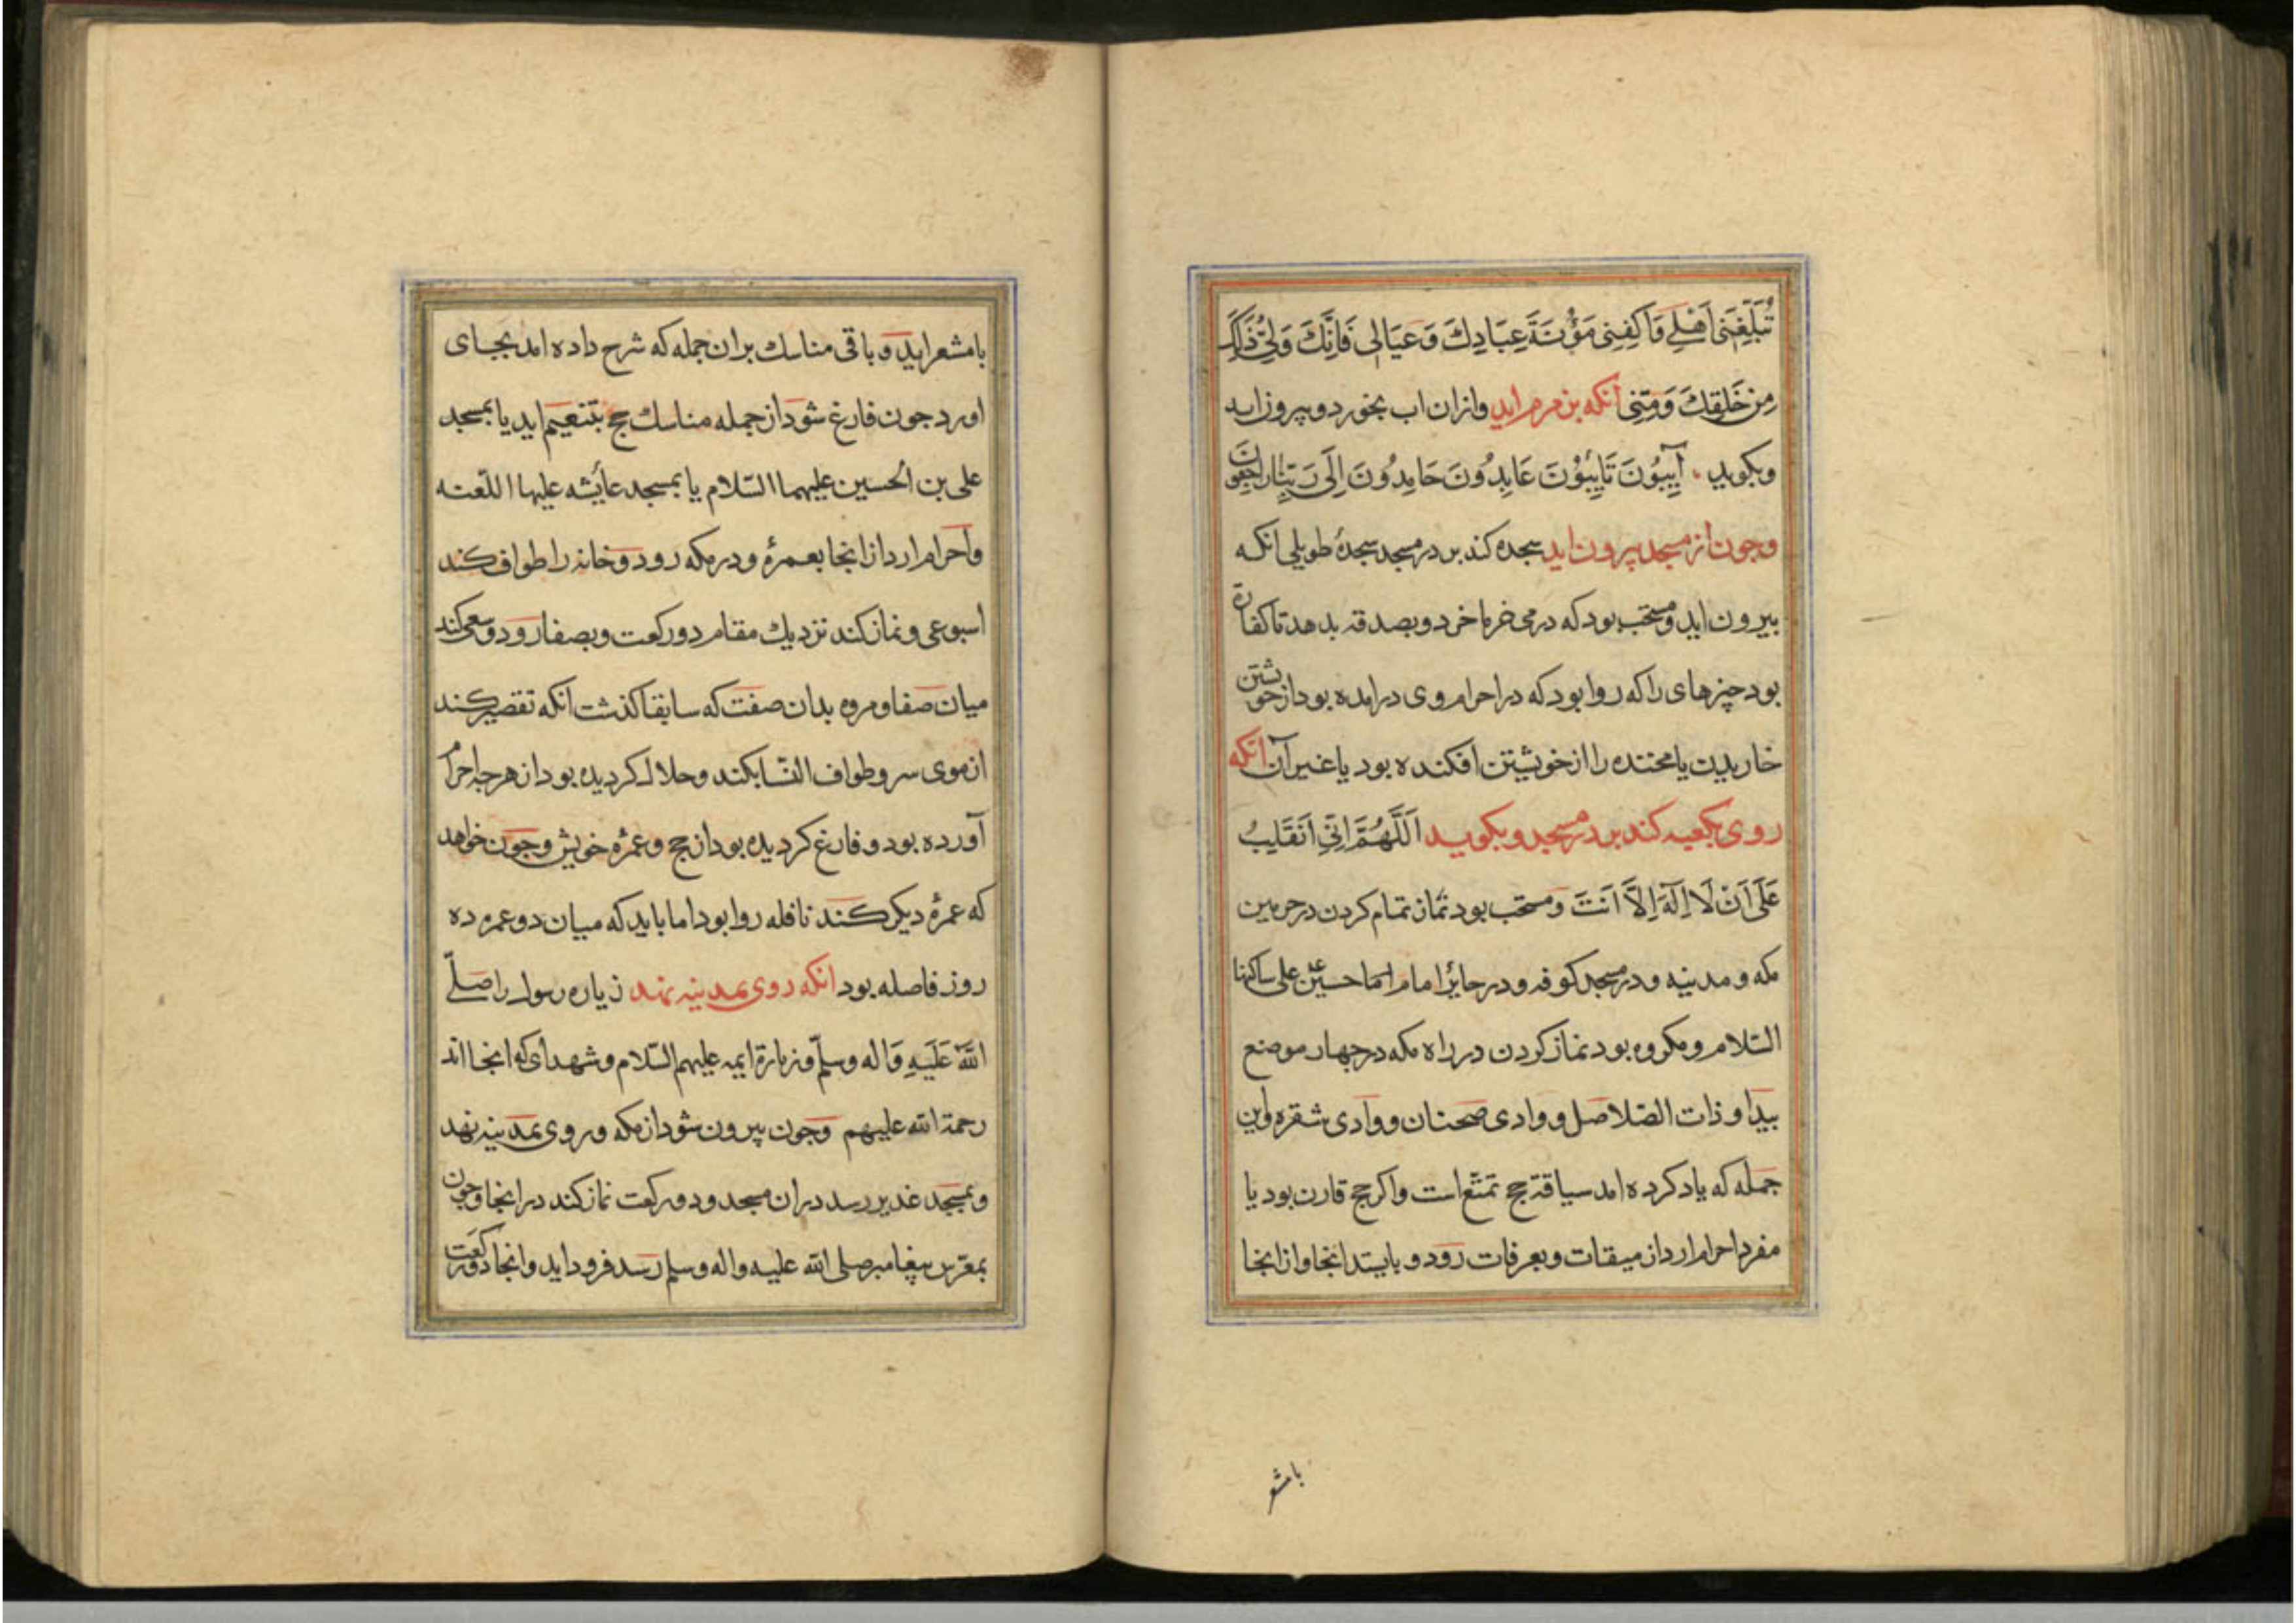 تُبَلِّغَنِی اَهْلِی وَاَکفِنِی مَؤُنَةَ عِبَادِكَ وَعَیَالِی فَاِنَّكَ وَلِیُّ ذَلِكَ
مِن خَلقِكَ وَمِنِّی آنکه بزمزم اید وازان اب بخورد وبیروزاید
وبکوید آیِبُونَ تَایِبُوْنَ عَابِدُونَ حَامِدُونَ اِلَی رَبِّنٰا راجِعُونَ
وجون از مسجد بیرون اید سجده کند بر در مسجد سجدۀ طویلی انکه
بیرون اید ومستحب بود که درمی خرما خرد وبصدقه بدهد تا کفارة
بود چیزهای را که روا بود که در احرام وی درامده بود از خویشتن
خاریدن یا محننده را از خویشتن افکنده بود یا غیر آن آنکه
روی بکعبه کند بر در مسجد و بکوید اَللَّهُمَّ اِنِّی اَنقَلِبُ
عَلَی اَنْ لَا اِلَهَ اِلَّا اَنتَ ومستحب بود نماز تمام کردن در حرمین
مکه و مدینه ودر مسجد کوفه ودر حایر امام حسین علی ساکنها
السّلام ومکروه بود نماز کردن در راه مکه در جهار موضع
بیدا و ذات الصّلاصل و وادی ضجنان ووادی شقره واین
جمله که یاد کرده امد سیاقة حج تمتّع است واکر حج قارن بود یا
مفرد احرام ارد از میقات وبعرفات رود و بایستد انجا واز انجا
بامشعر
بامشعر اید و باقی مناسك بران جمله که شرح داده امد بجای
اورد جون فارغ شود از جمله مناسك حج بتنعیم اید یا بمسجد
علی بن الحسین علیهما السّلام یا بمسجد عایشه علیها اللّعنه
واحرام ارد از انجا بعمرۀ ودر مکه رود وخانه را طواف کند
اسبوعی ونماز کند نزدیك مقام دو رکعت وبصفا رود وسعی کند
میان صفا ومروه بدان صفت که سابقا کذشت انکه تقصیر کند
از موی سر وطواف النّسا بکند وحلال کردیده بود از هرجه احرام
آورده بود و فارغ کردیده بود از حج وعمرۀ خویش وجون خواهد
که عمرۀ دیکر کند نافله روا بود اما باید که میان دو عمره ده
روز فاصله بود انکه روی بمدینه نهد زیاره رسول را صَلّی
اللّهُ عَلَیهِ وَاله وسلّم وزیارة ایمه علیهم السّلام وشهدای که انجا اند
رحمة الله علیهم وجون بیرون شود از مکه وروی بمدینه نهد
وبمسجد غدیر رسد دران مسجد ودو رکعت نماز کند در انجا وجون
بمعرّس پیغامبر صلی الله علیه واله وسلم رسد فرود اید وانجا دو رکعت